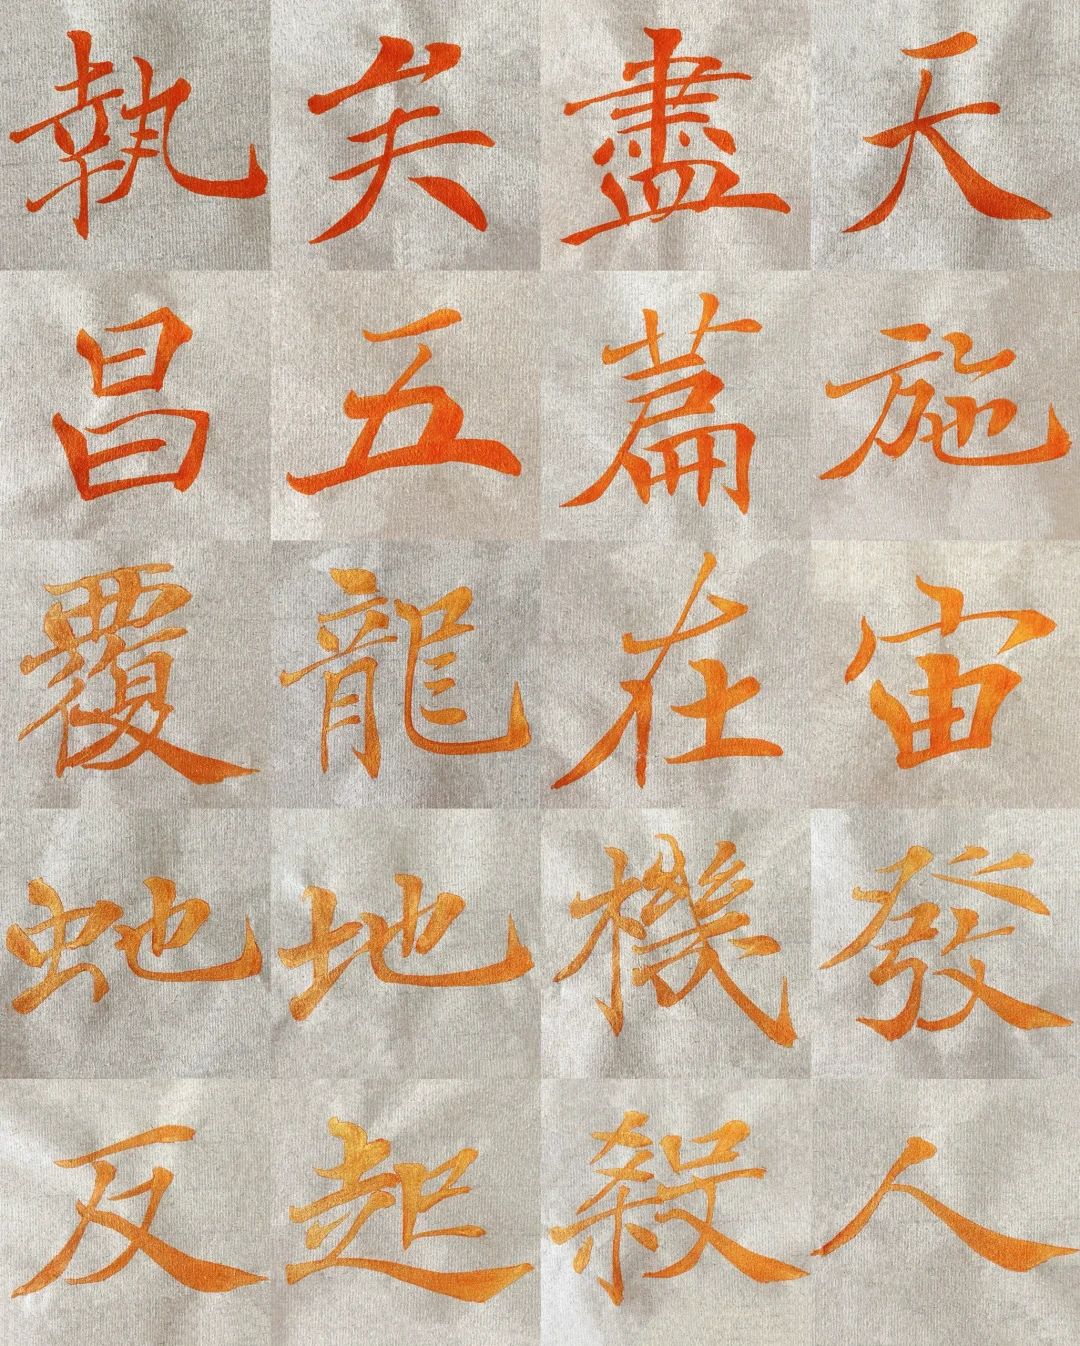 執矣盡天
昌五萹施
覆龍在宙
蛇地機發
反起殺人